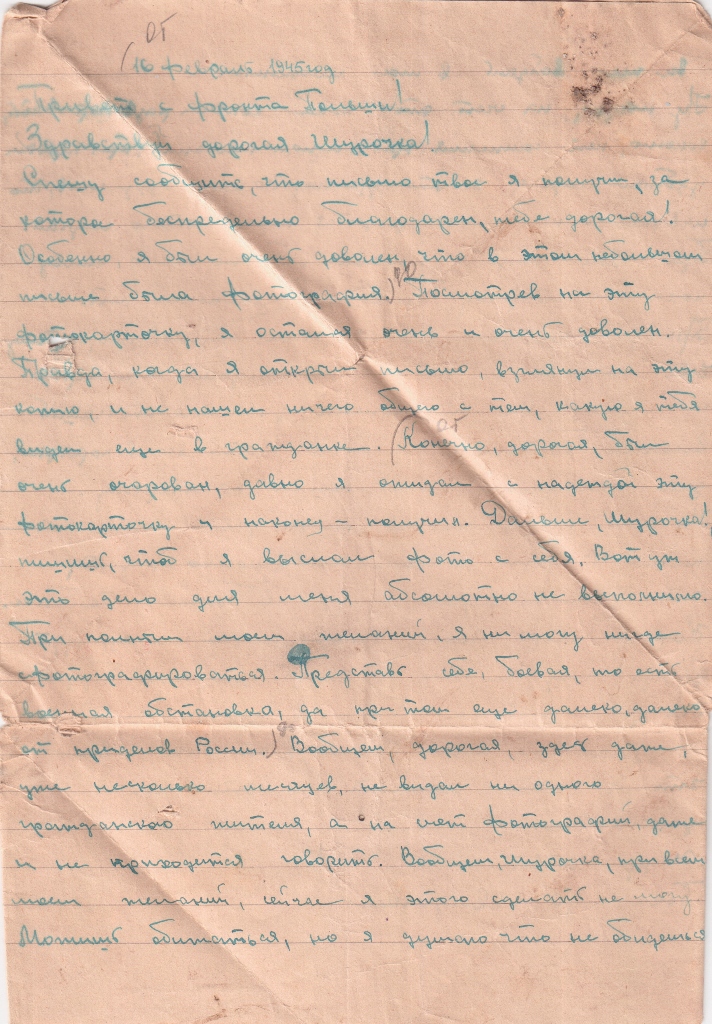 от
16 февраля 1945 год
Привет с фронта Польши!
Здравствуй дорогая Шурочка!
Спешу сообщить, что письмо твое я получил, за
котора беспредельно благодарен, тебе дорогая!
Особенно я был очень доволен, что в этом небольшом
письме была фотография.) Посмотрев на эту
фотокарточку, я остался очень и очень доволен.
Правда, когда я открыл письмо, взглянул на эту
копию, и не нашел ничего общего с тем, какую я тебя
видел еще в гражданке. (Конечно, дорогая, был
очень очарован, давно я ожидал с надеждой эту
фотокарточку и наконец – получил. Дальше, Шурочка!
пишишь, чтоб я выслал фото с себя. Вот уж
это дело для меня абсолютно не выполнимо.
При полнтии моем желаний, я ни могу нигде
сфотографироваться. Представь себе, боевая, то есть
военная обстановка, да при том еще далеко, далеко
от приделов России.) Вообщем, дорогая, здесь даже,
уже несколько месяцев, не видал ни одного
гражданского жителя, а на счет фотографий, даже
и не приходится говорить. Вообщем, Шурочка, при всем
моем желаний, сейчас я этого сделать не могу
Можишь обижаться, но я думаю что не обидешься